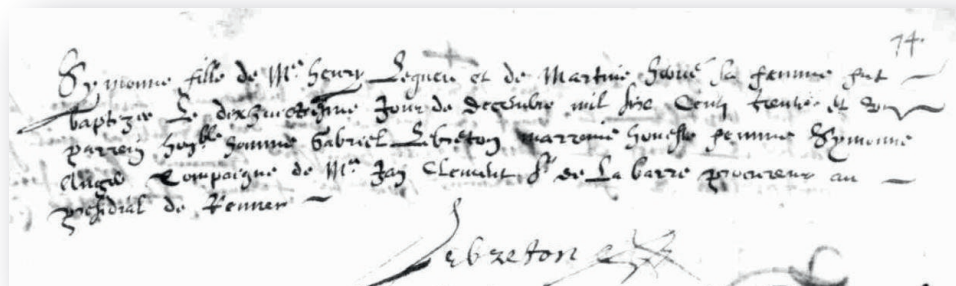 74.
Symonne fille de Me henry Legueu et de Martine sa femme fut
baptizee Le dixhuictiesme Jour de decembre mil six Centz trente et
parrein honble homme Gabriel Lebreton marraine honeste femme Symonne
Compaigne de Me Jan Clement Sr de La barre procureur au
presidial de Rennes
Lebreton